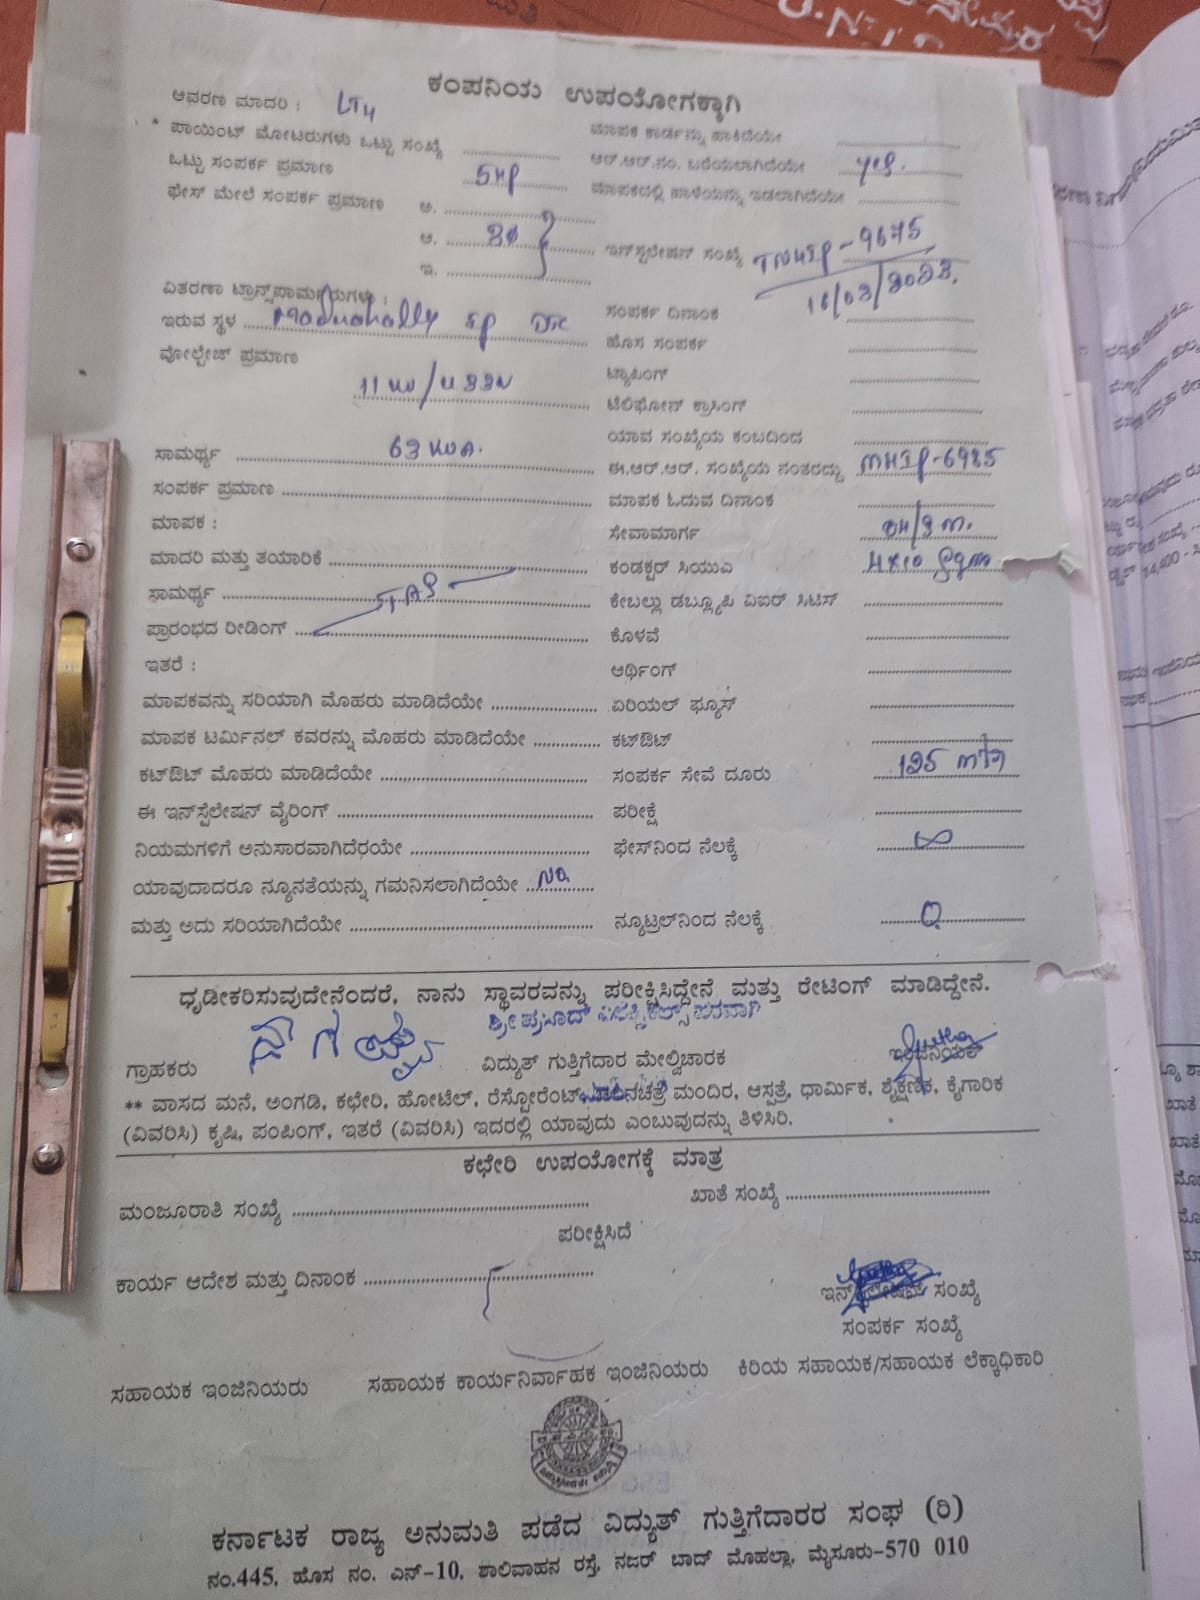 ಕಂಪನಿಯ ಉಪಯೋಗಕ್ಕಾಗಿ
ಆವರಣ ಮಾದರಿ : LT4
ಪಾಯಿಂಟ್ ಮೋಟರುಗಳು ಒಟ್ಟು ಸಂಖ್ಯೆ ಮಾಪಕ ಕಾರ್ಡನ್ನು ಹಾಕಿದೆಯೇ
ಒಟ್ಟು ಸಂಪರ್ಕ ಪ್ರಮಾಣ 5HP ಆರ್.ಆರ್.ನಂ. ಬರೆಯಲಾಗಿದೆಯೇ yes.
ಫೇಸ್ ಮೇಲೆ ಸಂಪರ್ಕ ಪ್ರಮಾಣ ಅ. ಮಾಪಕದಲ್ಲಿ ಹಾಳೆಯನ್ನು ಇಡಲಾಗಿದೆಯೇ
ಆ. 3Ø ಇನ್‌ಸ್ಟಲೇಷನ್ ಸಂಖ್ಯೆ TNHIP-9675
ಇ. 16/03/2023.
ವಿತರಣಾ ಟ್ರಾನ್ಸ್‌ಪಾರ್ಮರುಗಳು :
ಇರುವ ಸ್ಥಳ Maduahally ಸಂಪರ್ಕ ದಿನಾಂಕ
ವೋಲ್ಟೇಜ್ ಪ್ರಮಾಣ ಹೊಸ ಸಂಪರ್ಕ
ಟ್ಯಾಪಿಂಗ್
ಟೆಲಿಫೋನ್ ಕ್ರಾಸಿಂಗ್
ಯಾವ ಸಂಖ್ಯೆಯ ಕಂಬದಿಂದ
ಸಾಮರ್ಥ್ಯ 63 KVA. ಈ.ಆರ್.ಆರ್. ಸಂಖ್ಯೆಯ ನಂತರದ್ದು MHIP-6985
ಸಂಪರ್ಕ ಪ್ರಮಾಣ ಮಾಪಕ ಓದುವ ದಿನಾಂಕ
ಮಾಪಕ : ಸೇವಾಮಾರ್ಗ OH/3 m.
ಮಾದರಿ ಮತ್ತು ತಯಾರಿಕೆ ಕಂಡಕ್ಟರ್ ಸಿಯುವಿ 4x10 sqm
ಸಾಮರ್ಥ್ಯ ಕೇಬಲ್ಲು ಡಬ್ಲ್ಯೂಪಿ ವಿಐರ್ ಸಿಟಿಸ್
ಪ್ರಾರಂಭದ ರೀಡಿಂಗ್ ಕೊಳವೆ
ಇತರೆ : ಆರ್ಥಿಂಗ್
ಮಾಪಕವನ್ನು ಸರಿಯಾಗಿ ಮೊಹರು ಮಾಡಿದೆಯೇ ಏರಿಯಲ್ ಫ್ಯೂಸ್
ಮಾಪಕ ಟರ್ಮಿನಲ್ ಕವರನ್ನು ಮೊಹರು ಮಾಡಿದೆಯೇ ಕಟ್‌ಔಟ್
ಕಟ್‌ಔಟ್ ಮೊಹರು ಮಾಡಿದೆಯೇ ಸಂಪರ್ಕ ಸೇವೆ ದೂರು 125 mtr
ಈ ಇನ್‌ಸ್ಟೆಲೇಷನ್ ವೈರಿಂಗ್ ಪರೀಕ್ಷೆ
ನಿಯಮಗಳಿಗೆ ಅನುಸಾರವಾಗಿದೆರಯೇ ಫೇಸ್‌ನಿಂದ ನೆಲಕ್ಕೆ ∞
ಯಾವುದಾದರೂ ನ್ಯೂನತೆಯನ್ನು ಗಮನಿಸಲಾಗಿದೆಯೇ No.
ಮತ್ತು ಅದು ಸರಿಯಾಗಿದೆಯೇ ನ್ಯೂಟ್ರಲ್‌ನಿಂದ ನೆಲಕ್ಕೆ 0
ಧೃಡೀಕರಿಸುವುದೇನೆಂದರೆ, ನಾನು ಸ್ಥಾವರವನ್ನು ಪರೀಕ್ಷಿಸಿದ್ದೇನೆ ಮತ್ತು ರೇಟಿಂಗ್ ಮಾಡಿದ್ದೇನೆ.
ಶ್ರೀ ಪ್ರಸಾದ್ ಎಲೆಕ್ಟ್ರಿಕಲ್ಸ್ ಪರವಾಗಿ
ನಾಗಪ್ಪ
ಗ್ರಾಹಕರು ವಿದ್ಯುತ್ ಗುತ್ತಿಗೆದಾರ ಮೇಲ್ವಿಚಾರಕ ಇಂಜಿನಿಯರ್
** ವಾಸದ ಮನೆ, ಅಂಗಡಿ, ಕಛೇರಿ, ಹೋಟೆಲ್, ರೆಸ್ಟೋರೆಂಟ್ ಚಲನಚಿತ್ರ ಮಂದಿರ, ಆಸ್ಪತ್ರೆ, ಧಾರ್ಮಿಕ, ಶೈಕ್ಷಣಿಕ, ಕೈಗಾರಿಕ
(ವಿವರಿಸಿ) ಕೃಷಿ, ಪಂಪಿಂಗ್, ಇತರೆ (ವಿವರಿಸಿ) ಇದರಲ್ಲಿ ಯಾವುದು ಎಂಬುವುದನ್ನು ತಿಳಿಸಿರಿ.
ಕಛೇರಿ ಉಪಯೋಗಕ್ಕೆ ಮಾತ್ರ
ಮಂಜೂರಾತಿ ಸಂಖ್ಯೆ ಖಾತೆ ಸಂಖ್ಯೆ
ಪರೀಕ್ಷಿಸಿದೆ
ಕಾರ್ಯ ಆದೇಶ ಮತ್ತು ದಿನಾಂಕ ಸಂಖ್ಯೆ
ಸಂಪರ್ಕ ಸಂಖ್ಯೆ
ಸಹಾಯಕ ಇಂಜಿನಿಯರು ಸಹಾಯಕ ಕಾರ್ಯನಿರ್ವಾಹಕ ಇಂಜಿನಿಯರು ಕಿರಿಯ ಸಹಾಯಕ/ಸಹಾಯಕ ಲೆಕ್ಕಾಧಿಕಾರಿ
ಕರ್ನಾಟಕ ರಾಜ್ಯ ಅನುಮತಿ ಪಡೆದ ವಿದ್ಯುತ್ ಗುತ್ತಿಗೆದಾರರ ಸಂಘ (ರಿ)
ನಂ.445, ಹೊಸ ನಂ. ಎನ್-10, ಶಾಲಿವಾಹನ ರಸ್ತೆ, ನಜರ್ ಬಾದ್ ಮೊಹಲ್ಲಾ, ಮೈಸೂರು-570 010